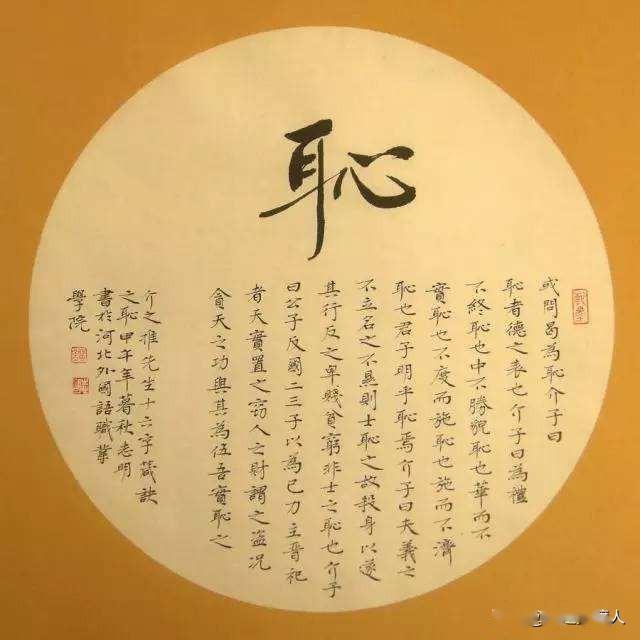 恥
或問曷為恥介子曰
恥者德之表也介子曰為禮
不終恥也中不勝貌恥也華而不
實恥也不度而施恥也施而不濟
恥也君子明乎恥焉介子曰夫義之
不立名之不顯則士恥之故殺身以遂
其行反之卑賤貧窮非士之恥也介子
曰公子反國二三子以為己力主晉祀
者天實置之窃人之財謂之盜況
貪天之功與其為伍吾實恥之
介之推先生十六字箴訣
之恥甲午年暮秋老明
書於河北外國語職業
學院